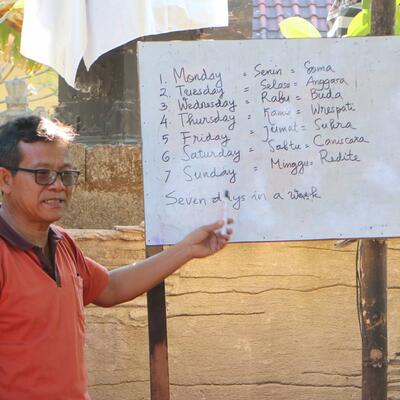 1. Monday = Senin = Soma
2. Tuesday = Selasa = Anggara
3. Wednesday = Rabu = Buda
4. Thursday = Kamis = Wrespati
5 Friday = Jumat = Sukra
6. Saturday = Sabtu = Caniscara
7 Sunday = Minggu = Redite
Seven days in a week